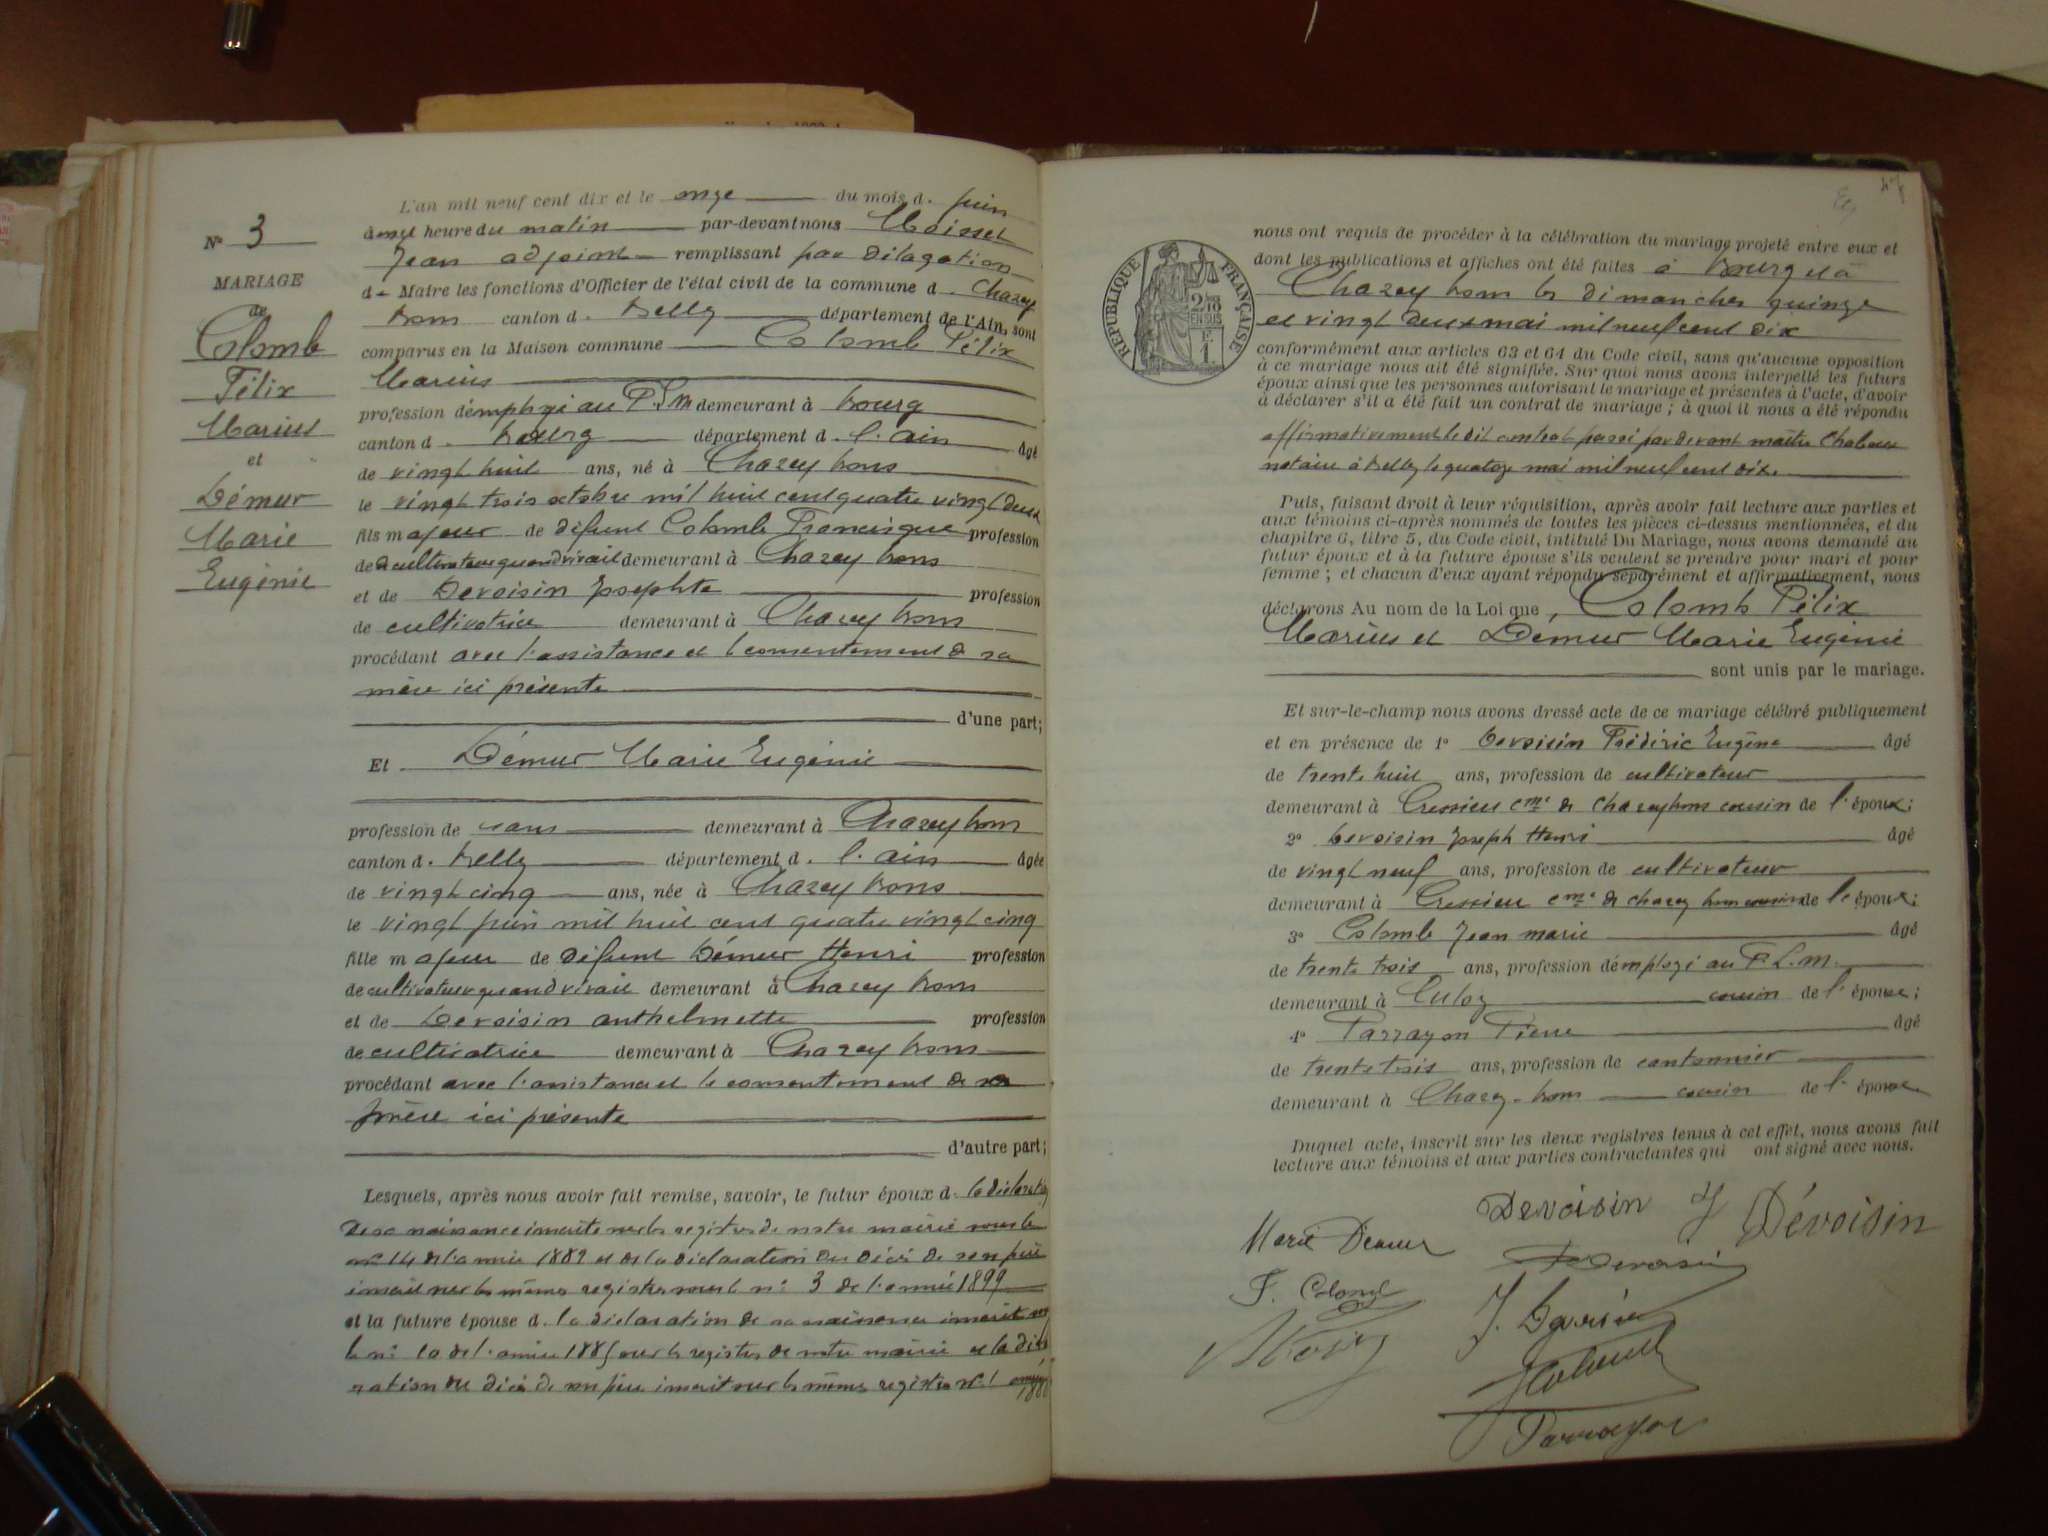 N° 3
MARIAGE
de
Colomb
Félix
Marius
et
Démur
Marie
Eugénie
L'an mil neuf cent dix et le onze du mois d. juin
à onze heure du matin par-devant nous Moissel
Jean adjoint remplissant par délagation
d. Maire les fonctions d'Officier de l'état civil de la commune d. Chazey
Bons canton d. Belley département de l'Ain, sont
comparus en la Maison commune Colomb Félix
Marius
profession d'emploié au P.L.M demeurant à Bourg
canton d. Bourg département d. l'ain âgé
de vingt huit ans, né à Chazey Bons
le vingt trois octobre mil huit cent quatre vingt deux
fils majeur de défunt Colomb Francisque profession
de cultivateur quand vivait demeurant à Chazey Bons
et de Devoisin Josephte profession
de cultivatrice demeurant à Chazey Bons
procédant avec l'assistance et le consentement de sa
mère ici présente
d'une part;
Et Démur Marie Eugénie
profession de sans demeurant à Chazey Bons
canton d. Belley département d. l'ain âgée
de vingt cinq ans, née à Chazey Bons
le vingt juin mil huit cent quatre vingt cinq
fille majeur de défunt Démur Henri profession
de cultivateur quand vivait demeurant à Chazey Bons
et de Devoisin anthelmette profession
de cultivatrice demeurant à Chazey Bons
procédant avec l'assistance et le consentement de sa
mère ici présente
d'autre part;
Lesquels, après nous avoir fait remise, savoir, le futur époux d. la déclaration
de sa naissance inscrite sur les registres de notre mairie sous le
n° 14 de l'année 1882 et de la déclaration du décès de son père
inscrit sur les mêmes registres sous le n° 3 de l'année 1899
et la future épouse d. la déclaration de sa naissance inscrit sous
le n° 10 de l'année 1885 sur les registres de notre mairie et la décla
ration du décès de son père inscrit sur les mêmes registres n° 1
47
RÉPUBLIQUE FRANÇAISE
nous ont requis de procéder à la célébration du mariage projeté entre eux et
dont les publications et affiches ont été faites à Bourg et à
Chazey Bons les dimanches quinze
et vingt deux mai mil neuf cent dix
conformément aux articles 63 et 64 du Code civil, sans qu'aucune opposition
à ce mariage nous ait été signifiée. Sur quoi nous avons interpellé les futurs
époux ainsi que les personnes autorisant le mariage et présentes à l'acte, d'avoir
à déclarer s'il a été fait un contrat de mariage ; à quoi il nous a été répondu
affirmativement ledit contrat passé par devant maître
notaire à Belley le quatorze mai mil neuf cent dix.
Puis, faisant droit à leur réquisition, après avoir fait lecture aux parties et
aux témoins ci-après nommés de toutes les pièces ci-dessus mentionnées, et du
chapitre 6, titre 5, du Code civil, intitulé Du Mariage, nous avons demandé au
futur époux et à la future épouse s'ils veulent se prendre pour mari et pour
femme ; et chacun d'eux ayant répondu séparément et affirmativement, nous
déclarons Au nom de la Loi que, Colomb Félix
Marius et Démur Marie Eugénie
sont unis par le mariage.
Et sur-le-champ nous avons dressé acte de ce mariage célébré publiquement
et en présence de 1° Devoisin Frédéric Eugène âgé
de trente huit ans, profession de cultivateur
demeurant à Cressieu cne de Chazey bons cousin de l'époux;
2° Devoisin Joseph Henri âgé
de vingt neuf ans, profession de cultivateur
demeurant à Cressieu cne de Chazey bons cousin de l'époux;
3° Colomb Jean marie âgé
de trente trois ans, profession d'emploié au P.L.M.
demeurant à Culoz cousin de l'épouse;
4° Parrayon Pierre âgé
de trente trois ans, profession de cantonnier
demeurant à Chazey-bons cousin de l'épouse
Duquel acte, inscrit sur les deux registres tenus à cet effet, nous avons fait
lecture aux témoins et aux parties contractantes qui ont signé avec nous.
Devoisin J Dévoisin
Marie Démur
Devoisin
F. Colomb
Parrayon